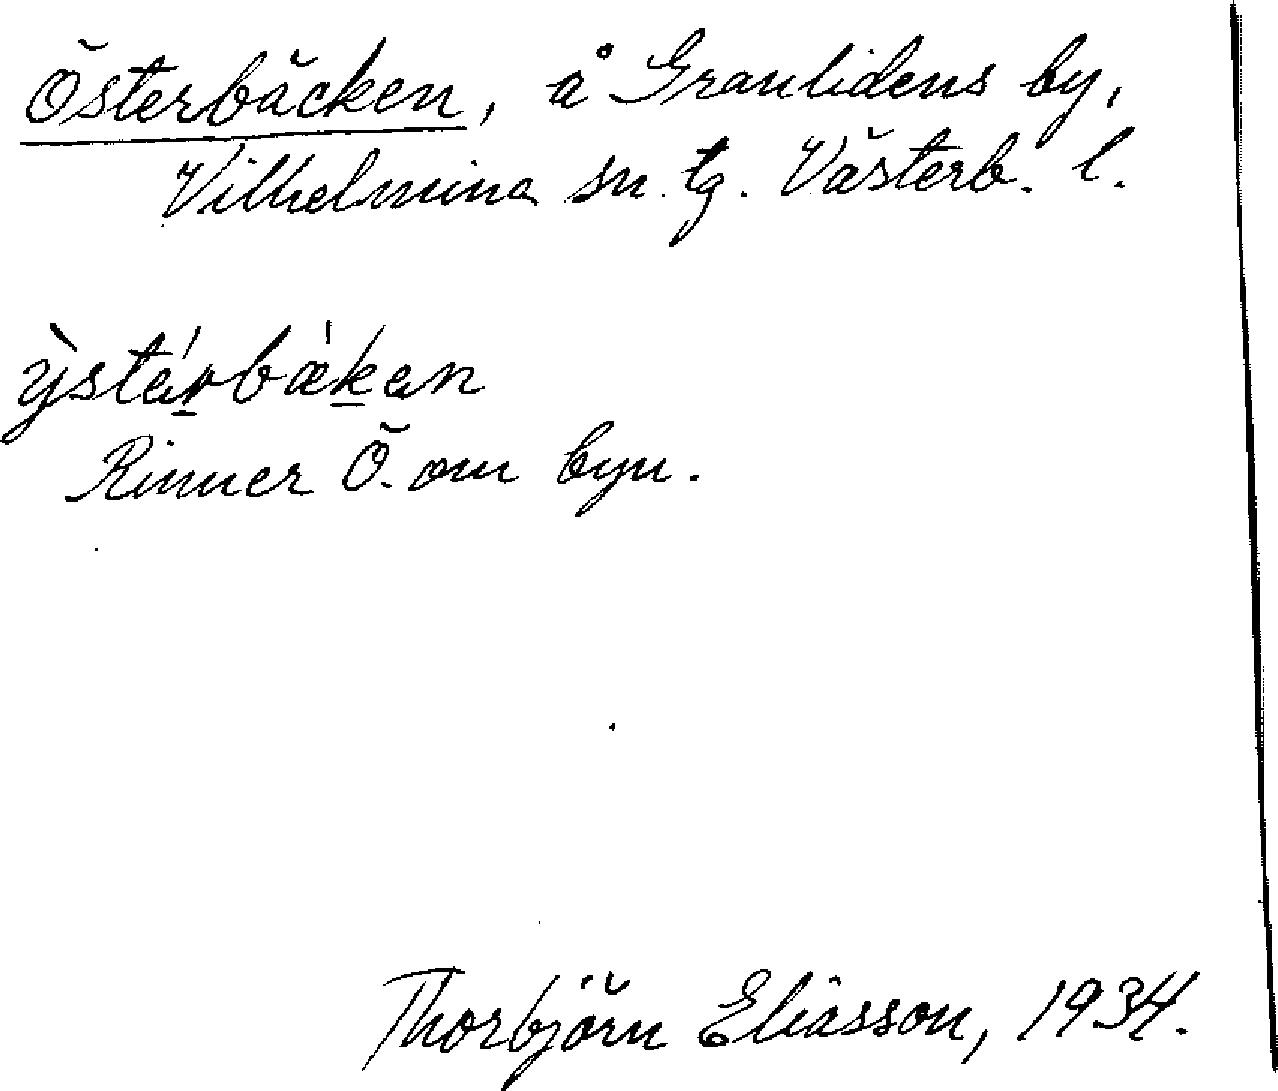 Österbäcken, å Granlidens by,
Vilhelmina sn. tg. Västerb. l.
ỳstárbǽkan
Rinner Ö. om byn.
Thorbjörn Eliasson, 1934.